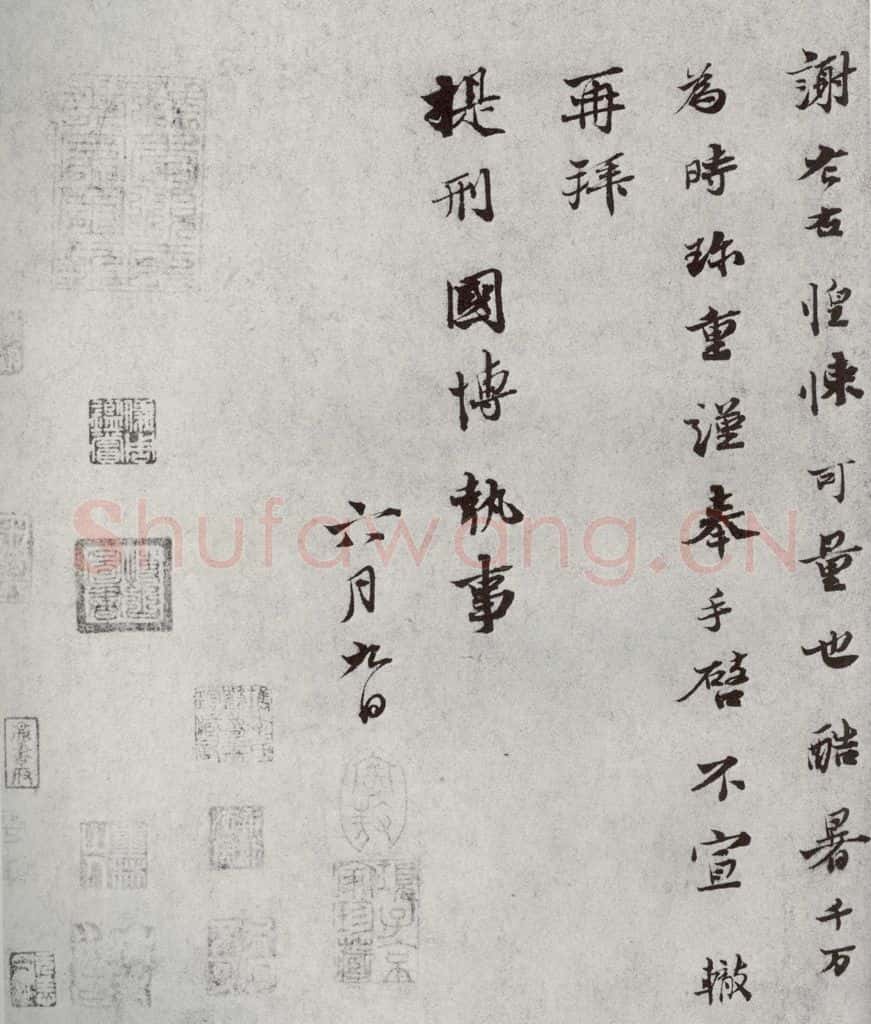 謝左右惶悚可量也酷暑千万
為時珎重謹奉手啓不宣轍
再拜
提刑國博執事
六月九日
Shufawang.CN